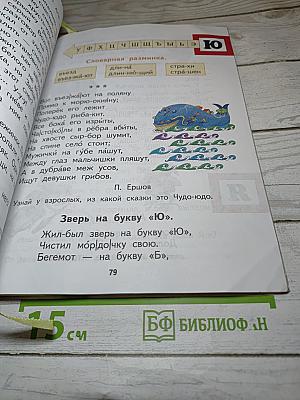 У Ф Х Ц Ч Ш Щ Ъ Ы Ь Э Ю
Словарная разминка.
въезд
въезжают
длина
длиннющий
страхи
страшен
* * *
въез|жа|ют на поляну
Прямо к морю-окияну;
Поперёк его лежит
Чудо-юдо рыба-кит.
Все бока его изрыты,
Час|то|ко|лы в рёбра вбиты,
На хвосте сыр-бор шумит,
На спине село стоит;
Мужички на губе пашут,
Между глаз мальчишки пляшут,
А в дубраве меж усов,
Ищут девушки грибов.
П. Ершов
Узнай у взрослых, из какой сказки это Чудо-юдо.
Зверь на букву «Ю».
Жил-был зверь на букву «Ю»,
Чистил мор|до|чку свою.
Бегемот — на букву «Б»,
79
15 см
БФ БИБЛИОФАН